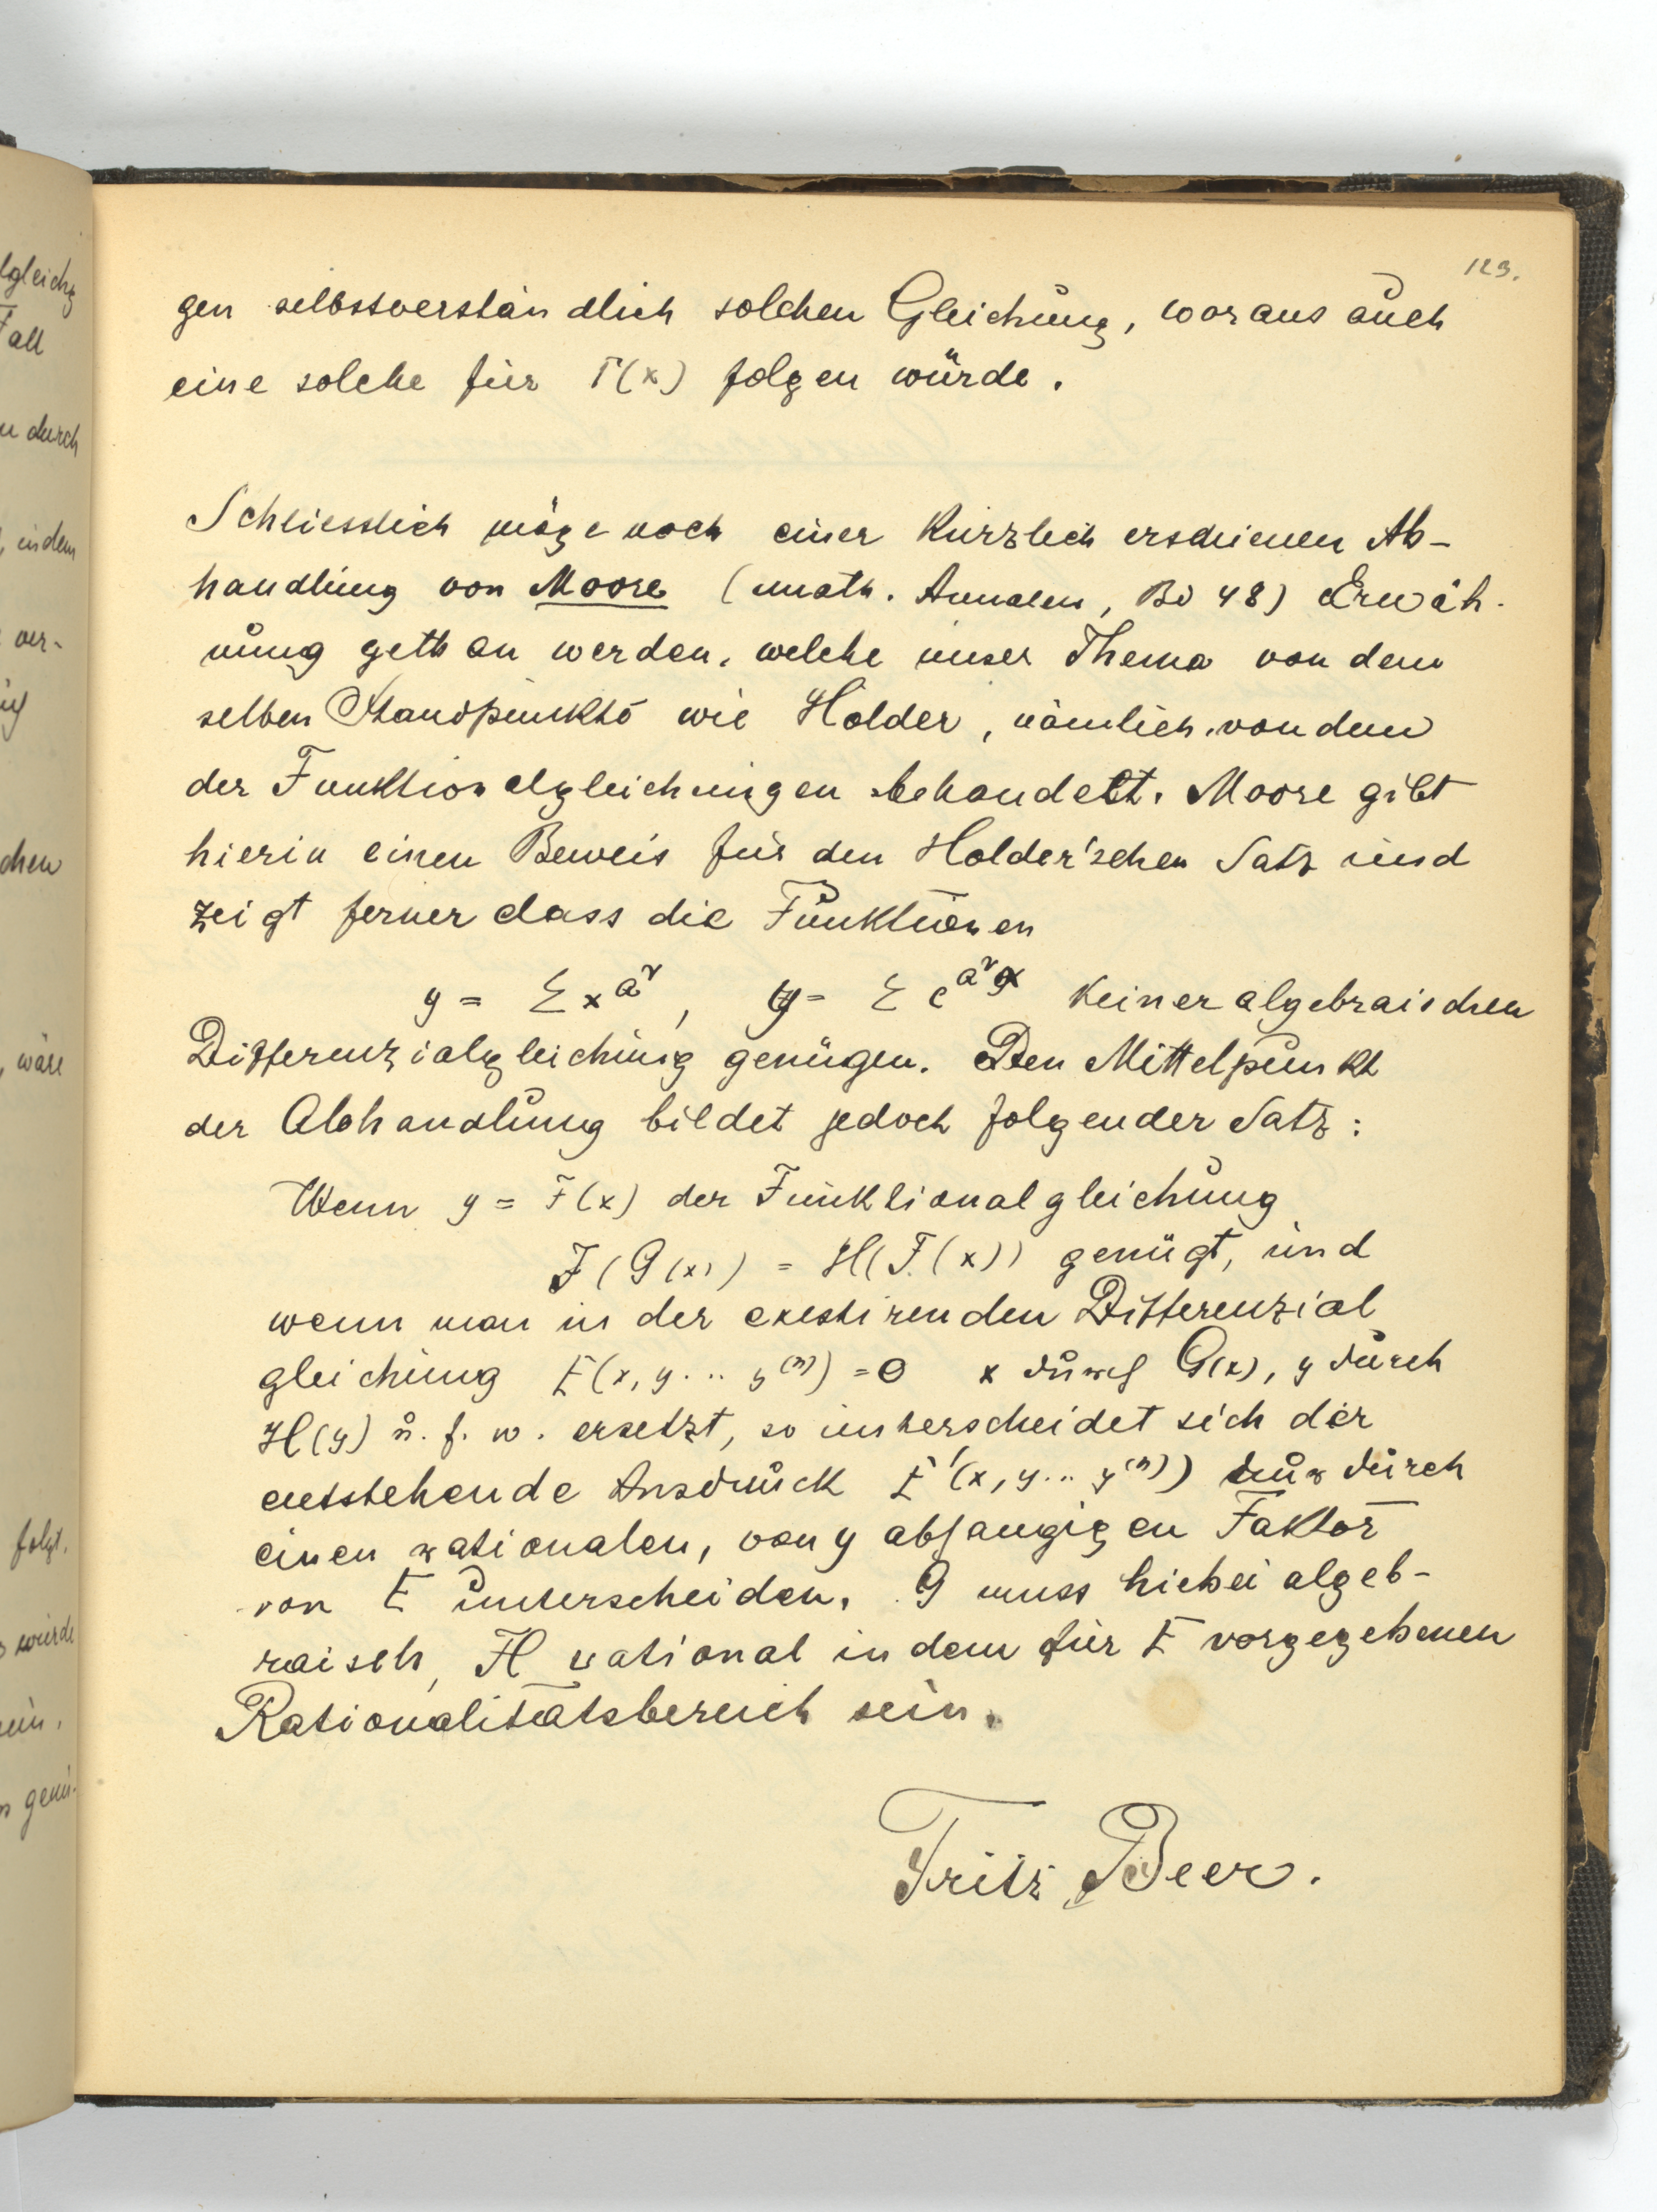 lgleichg
Fall
n durch
, indem
ver-
chen
, wäre
folgt.
würde
genü-
123.
gen selbstverständlich solchen Gleichung, woraus auch
eine solche für Γ(x) folgen würde.
Schliesslich möge noch einer kürzlich erschienen Ab-
handlung von Moore (math. Annalen, Bd 48) Erwäh-
nung gethan werden, welche unser Thema von dem
selben Standpunkte wie Hölder, nämlich von dem
der Funktionalgleichungen behandelt. Moore gibt
hierin einen Beweis für den Holder'schen Satz und
zeigt ferner dass die Funktionen
y = Σ x^{a^ν}, y = Σ e^{a^ν x} keiner algebraischen
Differenzialgleichung genügen. Den Mittelpunkt
der Abhandlung bildet jedoch folgender Satz:
Wenn y = F(x) der Funktionalgleichung
F(G(x)) = H(F(x)) genügt, und
wenn man in der existirenden Differenzial
gleichung E(x, y... y^{(n)}) = 0 x durch G(x), y durch
H(y) u. s. w. ersetzt, so unterscheidet sich der
entstehende Ausdruck E'(x, y... y^{(n)}) nur durch
einen rationalen, von y abhangigen Faktor
von E unterscheiden. G muss hiebei algeb-
raisch, H rational in dem für E vorgegebenen
Rationalitätsbereich sein.
Fritz Beer.